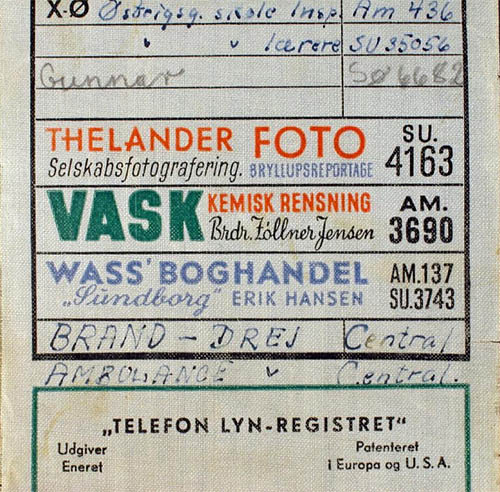 X-Ø Østrigsg. skole Insp. Am 436
" " lærere SU 35056
Gunnar Sø 6682
THELANDER FOTO SU. 4163
Selskabsfotografering. BRYLLUPSREPORTAGE
VASK KEMISK RENSNING AM. 3690
Brdr. Zöllner Jensen
WASS' BOGHANDEL AM.137
„Sundborg" ERIK HANSEN SU.3743
BRAND - DREJ Central
AMBULANCE " Central.
„TELEFON LYN-REGISTRET"
Udgiver Patenteret
Eneret i Europa og U.S.A.